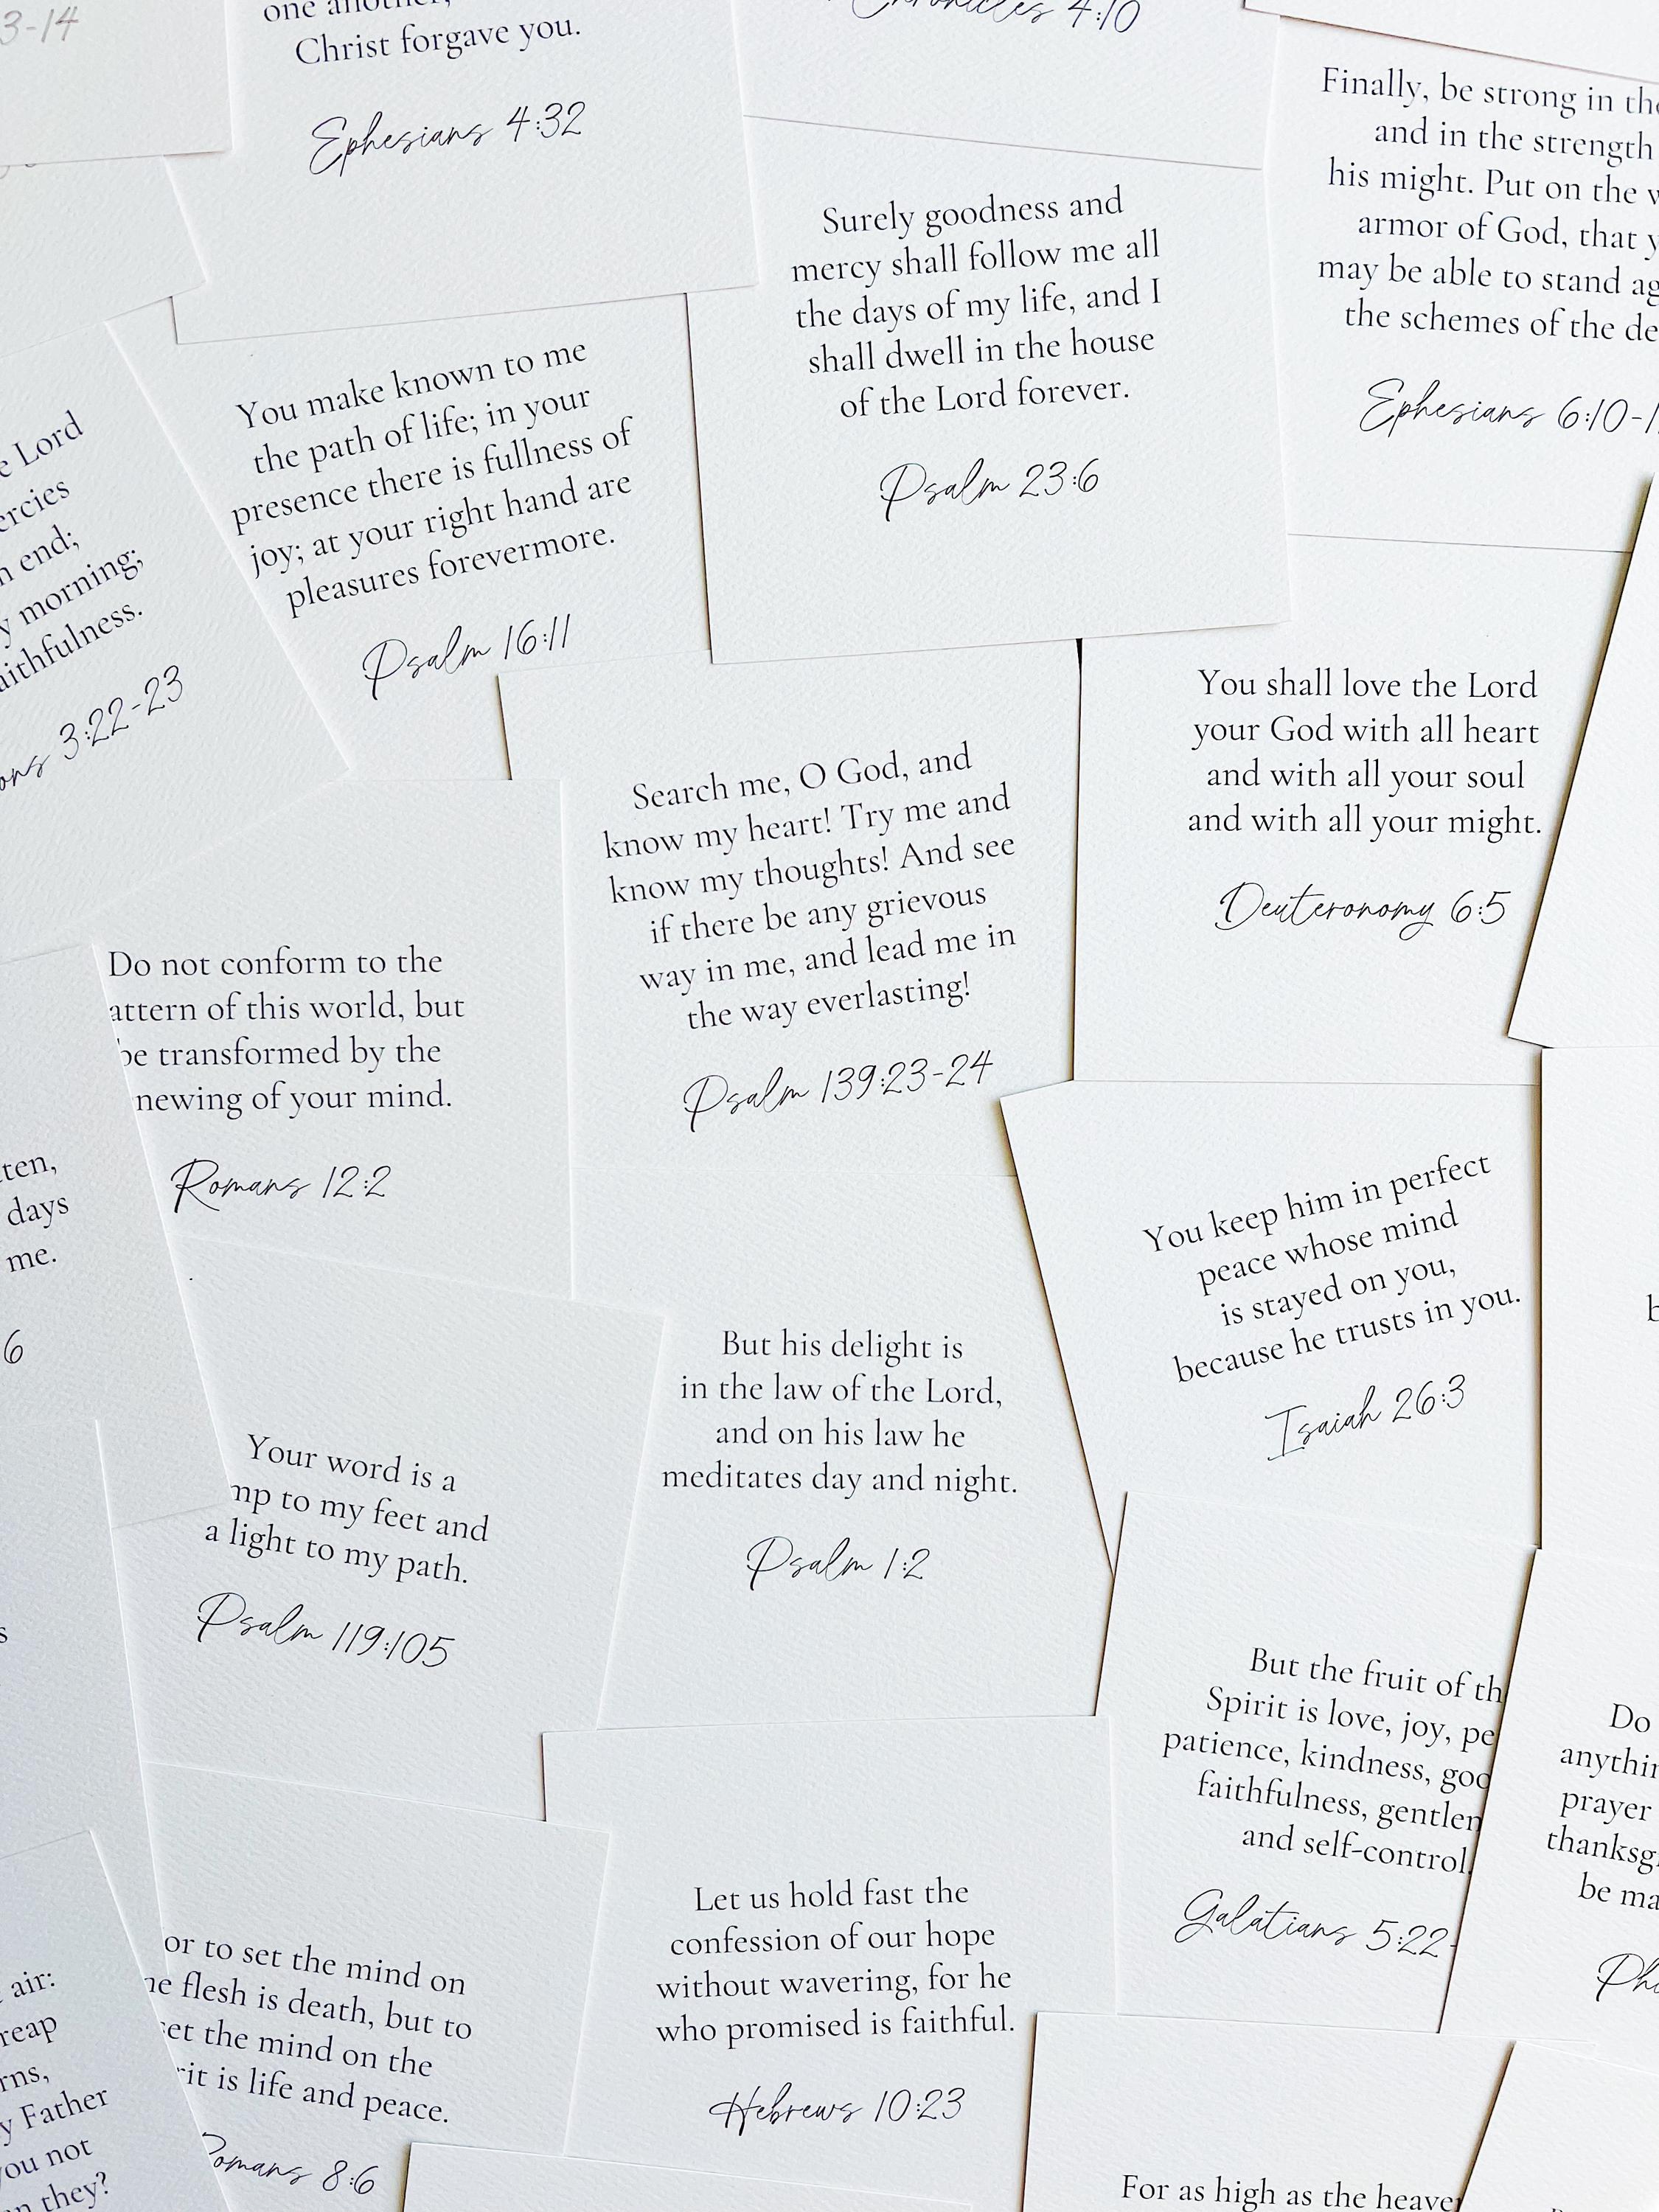 3-14
one another,
Christ forgave you.
Ephesians 4:32
Chronicles 4:10
Finally, be strong in the
and in the strength
his might. Put on the
armor of God, that
may be able to stand
the schemes of the
Ephesians 6:10-1
Surely goodness and
mercy shall follow me all
the days of my life, and I
shall dwell in the house
of the Lord forever.
Psalm 23:6
You make known to me
the path of life; in your
presence there is fullness of
joy; at your right hand are
pleasures forevermore.
Psalm 16:11
Lord
ercies
end;
morning;
aithfulness.
ons 3:22-23
You shall love the Lord
your God with all heart
and with all your soul
and with all your might.
Deuteronomy 6:5
Search me, O God, and
know my heart! Try me and
know my thoughts! And see
if there be any grievous
way in me, and lead me in
the way everlasting!
Psalm 139:23-24
Do not conform to the
attern of this world, but
be transformed by the
newing of your mind.
Romans 12:2
tten,
days
me.
6
You keep him in perfect
peace whose mind
is stayed on you,
because he trusts in you.
Isaiah 26:3
b
But his delight is
in the law of the Lord,
and on his law he
meditates day and night.
Psalm 1:2
Your word is a
mp to my feet and
a light to my path.
Psalm 119:105
s
But the fruit of th
Spirit is love, joy, pe
patience, kindness, goo
faithfulness, gentlen
and self-control.
Galatians 5:22-
Do
anythin
prayer
thanksg
be ma
Phi
or to set the mind on
he flesh is death, but to
set the mind on the
rit is life and peace.
Romans 8:6
Let us hold fast the
confession of our hope
without wavering, for he
who promised is faithful.
Hebrews 10:23
air:
reap
rns,
y Father
you not
n they?
For as high as the heaven